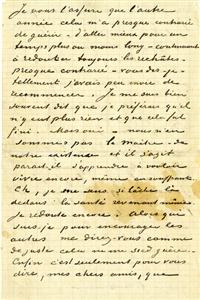 je vous l'assure que l'autre
année cela m'a presque contrarié
de guérir – d'aller mieux pour un
temps plus ou moins long – continuant
à redouter toujours les rechûtes –
presque contrarié – vous dis je –
tellement j'avais peu envie de
recommencer. Je me suis bien
souvent dit que je préférais qu'il
n'y eut plus rien et que cela fut
fini. Mais oui – nous n'en
sommes pas le maître – de
notre existence et il s'agit
parait il d'apprendre à vouloir
vivre encore, même en souffrant.
Ah, je me sens si lâche là
dedans; la santé revenant même,
je redoute encore. Alors qui
suis je pour encourager les
autres me direz-vous comme
de juste cela ne me sied guère.
Enfin c'est seulement pour vous
dire, mes chers amis, que